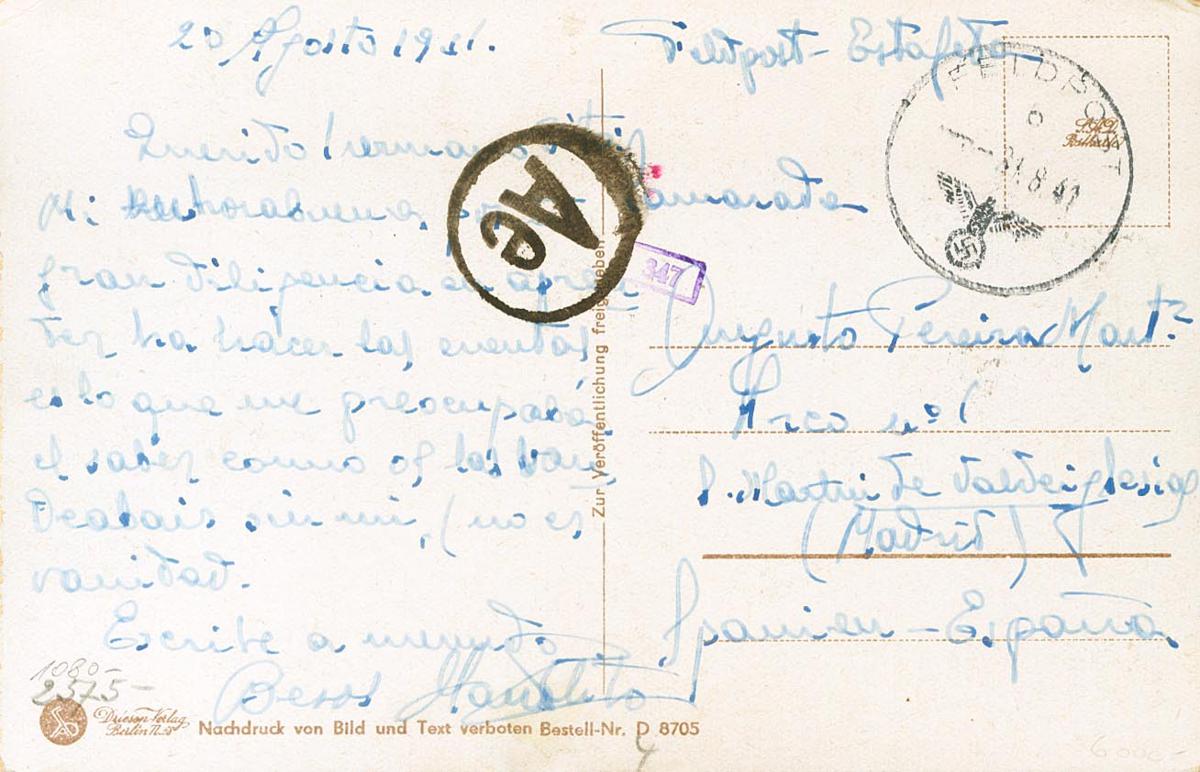 20 Agosto 1941.
Querido hermano
Mi enhorabuena, por
gran diligencia en apren
der ha hacer las cuentas
es lo que me preocupaba,
el saber como os las
sin mi, (no es
vanidad.
Escribe a menudo
Besos Manolito
Feldpost - Estafeta
Camarada
Augusto Pereira Mart.
Arco nº 1
S. Martin de Valdeiglesias
(Madrid)
Spanien - España
FELDPOST
31.8.41
Ae
347
Zur Veröffentlichung freigegeben
1080-
2575-
Driesen-Verlag
Berlin
Nachdruck von Bild und Text verboten Bestell-Nr. D 8705
6000-